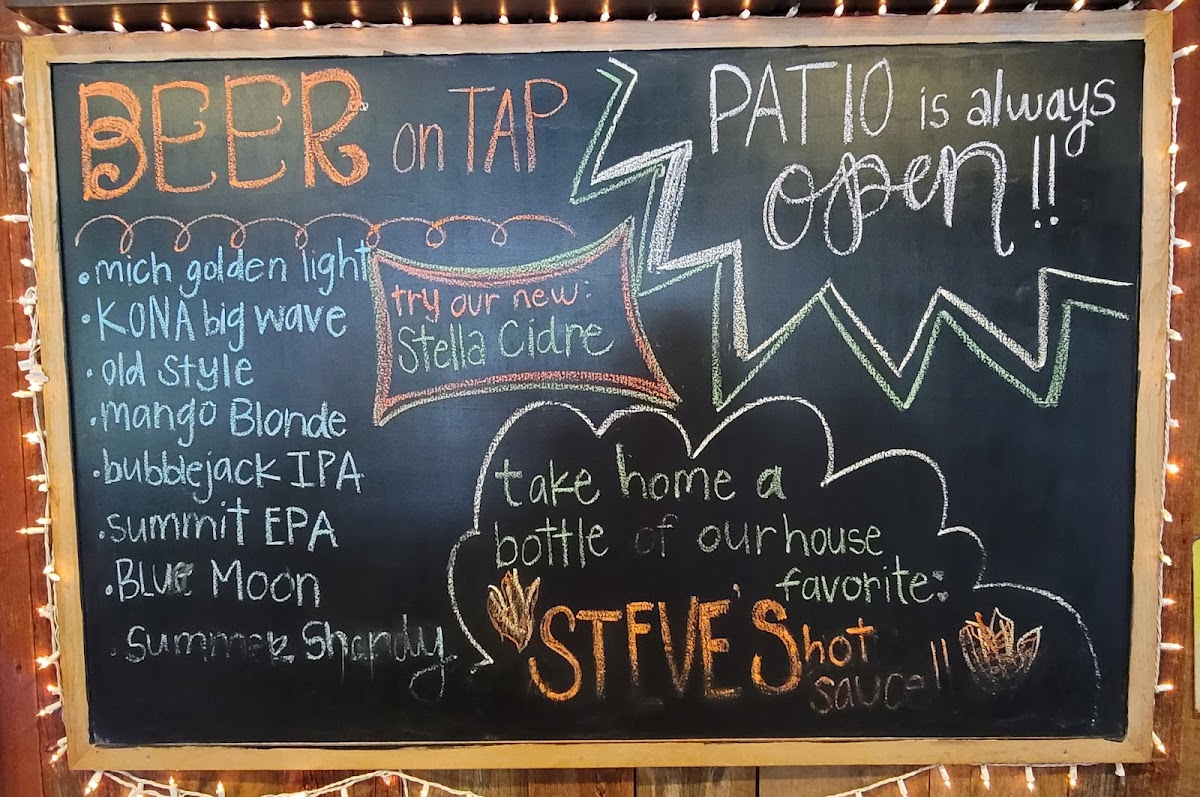 BEER on TAP
• mich golden light
• KONA big wave
• old style
• mango Blonde
• bubblejack IPA
• summit EPA
• Blue Moon
• summer shandy
try our new:
Stella Cidre
PATIO is always
open!!
take home a
bottle of our house
favorite:
STEVE'S hot
sauce!!